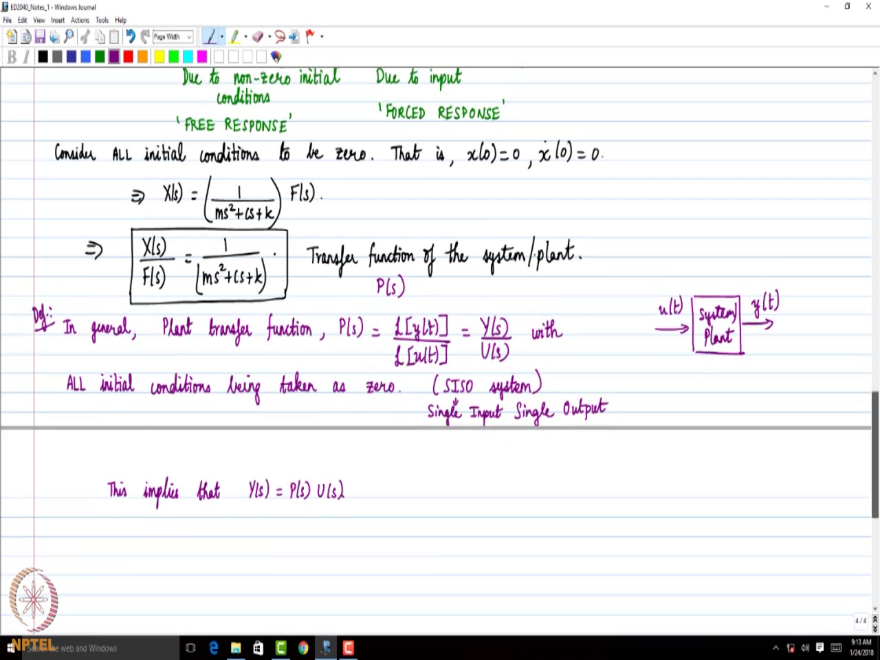 ED2040_Notes_1 - Windows Journal
File Edit View Insert Actions Tools Help
Page Width
B I
Due to non-zero initial conditions
'FREE RESPONSE'
Due to input
'FORCED RESPONSE'
Consider ALL initial conditions to be zero. That is, x(0)=0, ẋ(0)=0.
⇒ X(s) = (1/(ms²+cs+k)) F(s).
⇒ X(s)/F(s) = 1/(ms²+cs+k). Transfer function of the system/plant.
P(s)
Def: In general, Plant transfer function, P(s) = ℒ[y(t)]/ℒ[u(t)] = Y(s)/U(s) with
u(t) → System/Plant y(t) →
ALL initial conditions being taken as zero. (SISO system)
Single Input Single Output
This implies that Y(s) = P(s) U(s)
4/4
NPTEL
e web and Windows
9:13 AM
1/24/2018